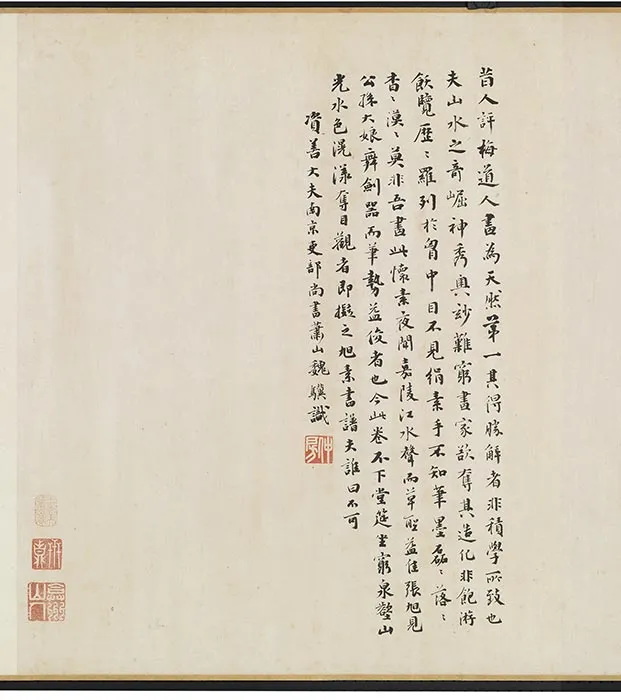 昔人評梅道人畫為天然第一其得勝解者非積學所致也
夫山水之奇崛神秀奧玅難窮畫家欲奪其造化非飽游
飫覽歷〻羅列於胷中目不見絹素手不知筆墨磊〻落〻
杳〻漠〻莫非吾畫此懷素夜聞嘉陵江水聲而草聖益佳張旭見
公孫大娘舞劍器而筆勢益俊者也今此卷不下堂筵坐窮泉壑山
光水色滉漾奪目觀者即擬之旭素書譜夫誰曰不可
資善大夫南京吏部尚書蕭山魏驥識
仲房